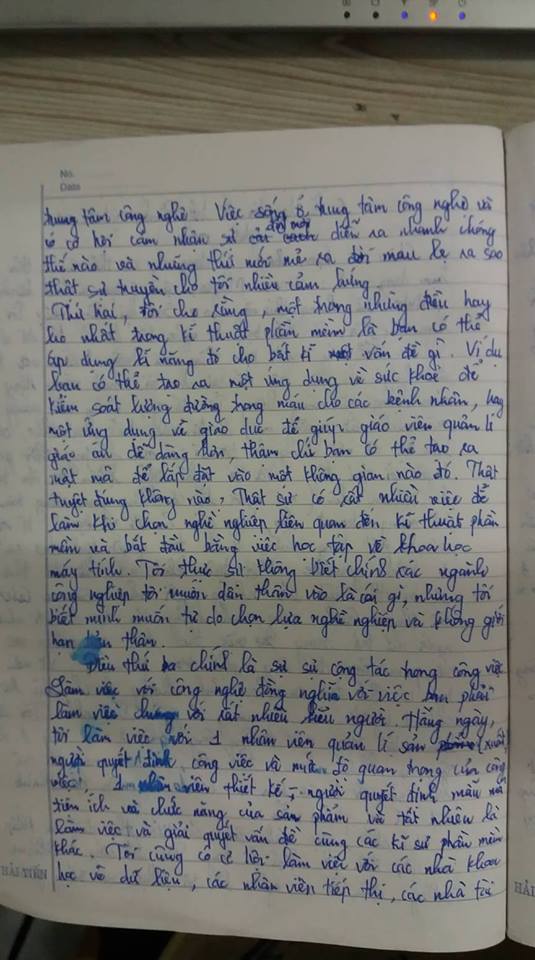 No.
Date
trung tâm công nghê. Việc sống ở trung tâm công nghê và
có cơ hôi cảm nhân sư đổi mới diễn ra nhanh chóng
thế nào và những thứ mới mẻ ra đời mau lẹ ra sao
thât sư truyền cho tôi nhiều cảm hứng.
Thứ hai, tôi cho rằng, một trong những điều hay
ho nhất trong kĩ thuât phần mềm là ban có thể
áp dung kĩ năng đó cho bất kì một vấn đề gì. Ví du
ban có thể tao ra một ứng dung về sức khoẻ để
kiểm soát lương đường trong máu cho các bệnh nhân, hay
một ứng dung về giáo duc để giúp giáo viên quản lí
giáo án dễ dàng hơn, thâm chí ban có thể tao ra
mât mã để lắp đặt vào một không gian nào đó. Thât
tuyệt đúng không nào. Thât sư có rất nhiều viêc để
làm khi chon nghề nghiệp liên quan đến kĩ thuât phần
mềm và bắt đầu bằng viêc hoc tâp về khoa hoc
máy tính. Tôi thưc sư không biết chính xác ngành
công nghiêp tôi muốn dấn thân vào là cái gì, nhưng tôi
biết mình muốn tư do chon lưa nghề nghiệp và không giới
han bản thân.
Điều thứ ba chính là sư công tác trong công viêc
Làm viêc với công nghê đồng nghĩa với viêc phải
làm viêc chung với rất nhiều kiểu người. Hằng ngày,
tôi làm viêc với 1 nhân viên quản lí sản xuất,
người quyết đinh công viêc và mức đô quan trong của công
viêc; 1 nhân viên thiết kế, người quyết đinh màu mã
tiên ích và chức năng của sản phẩm và tất nhiên là
làm viêc và giải quyết vấn đề cùng các kĩ sư phần mềm
khác. Tôi cũng có cơ hôi làm viêc với các nhà khoa
hoc về dữ liêu, các nhân viên tiếp thi, các nhà tài
HẢI TIẾN
HẢI